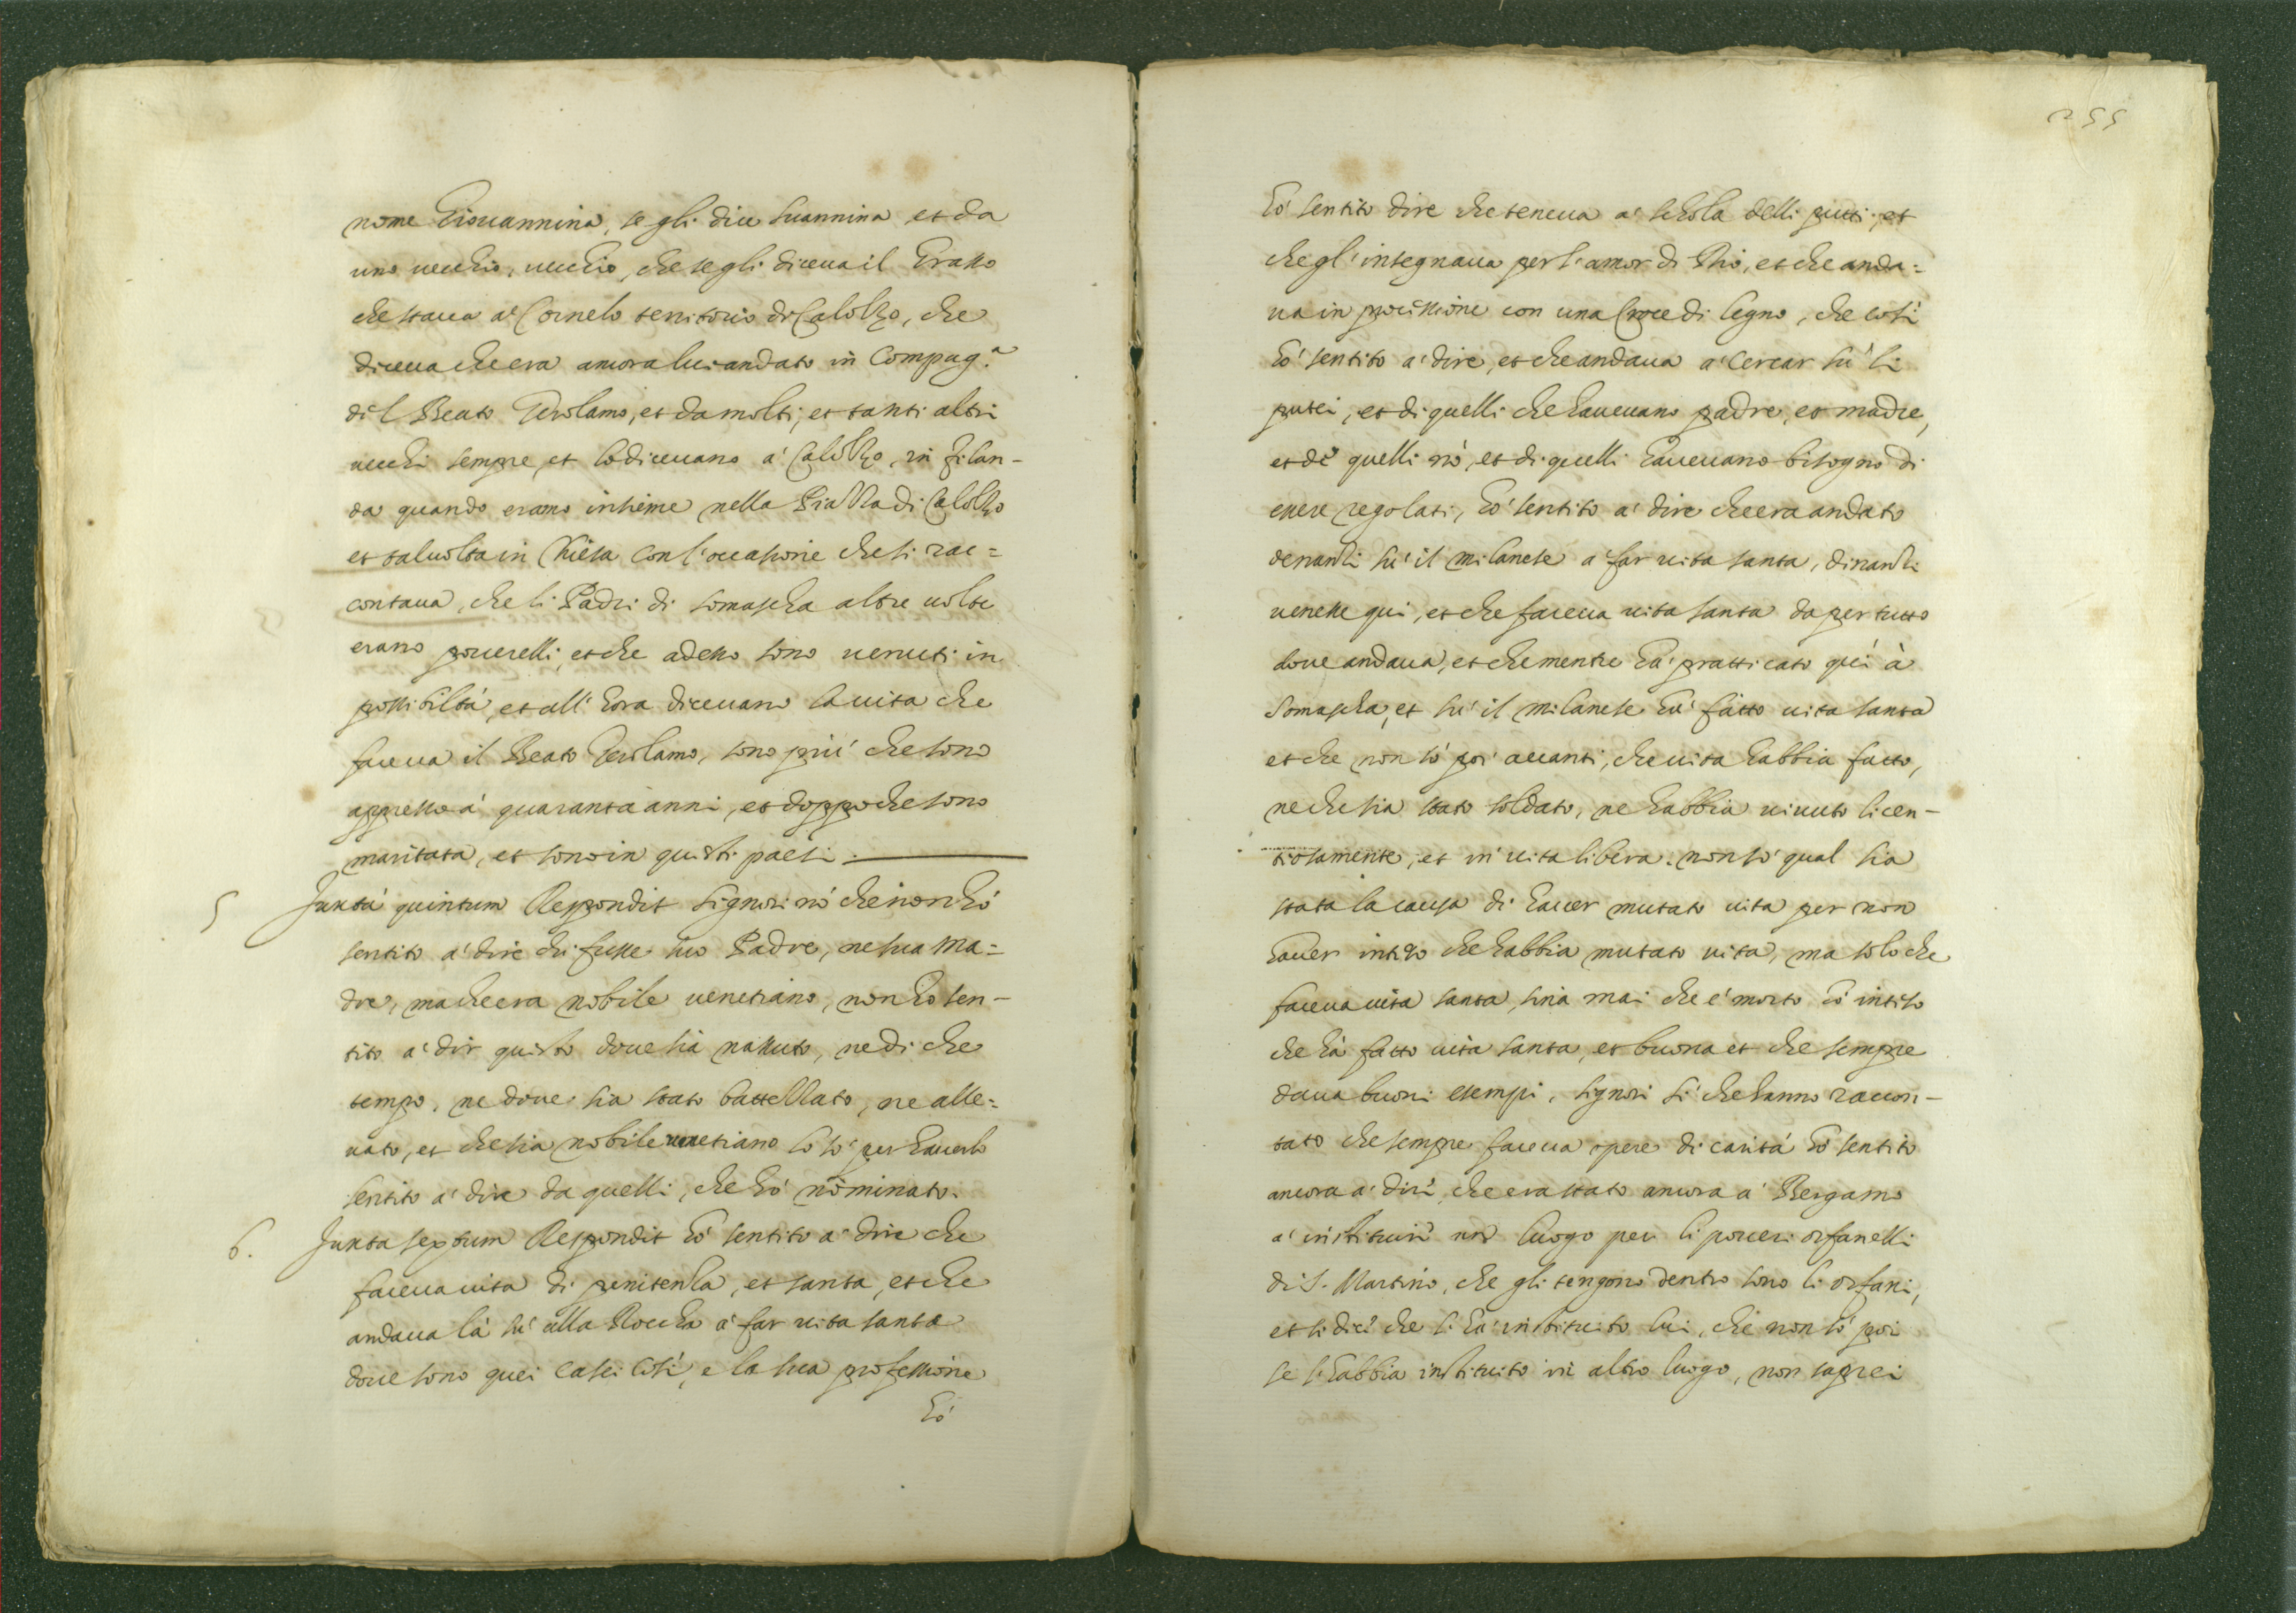 nome Giovannina, se gli dice Suannina et da
uno vecchio, vecchio, che se gli diceva il Grasso
che stava a' Cornelo territorio di Calolzo, che
diceva che era ancora lui andato in Compag.a
del Beato Gerolamo, et da molti, et tanti altri
vecchi sempre, et lo dicevano a' Calolzo, in filan-
da quando eramo insieme nella Piazza di Calolzo
et talvolta in Chiesa con l'occasione che si rac=
contava, che li Padri di Somascha altre volte
erano poverelli, et che adesso sono venuti in
possibiltà, et all'hora dicevano la vita che
faceva il Beato Gerolamo, sono più che sono
appresso a' quaranta anni, et doppo che sono
maritata, et sono in questi paesi.
5 Juxta quintum Respondit Signori nò che non hò
sentito a' dire chi fusse suo Padre, ne sua Ma=
dre, ma che era nobile venetiano, non ho sen-
tito a' dir questo dove sia nassuto, ne di che
tempo, ne dove sia stato battezzato, ne alle=
vato, et che sia nobile venetiano lo sò per haverlo
sentito a' dire da quelli, che hò nominato.
6. Juxta sextum Respondit hò sentito a' dire che
faceva vita di penitenza, et santa, et che
andava là sù alla Roccha a' far vita santa
dove sono quei Casei così, e la sua professione
hò
255
hò sentito dire che teneva a' schola delli putti, et
che gl'insegnava per l'amor di Dio, et che anda=
va in processione con una Croce di legno, che così
hò sentito a' dire, et che andava a' cercar sù li
putei, et di quelli che havevano padre, et madre,
et de quelli nò, et di quelli havevano bisogno di
essere regolati, hò sentito a' dire che era andato
denanzi sù il milanese a far vita santa, dinanzi
venesse qui, et che faceva vita santa da per tutto
dove andava, et che mentre hà pratticato quì à
Somascha, et sù il milanese hà fatto vita santa
et che non sò poi avanti, che vita habbia fatto,
ne che sia stato soldato, ne habbia vivuto licen-
tiosamente, et in vita libera. non sò qual sia
stata la causa di haver mutato vita per non
haver inteso che habbia mutato vita, ma solo che
faceva vita santa, sina mai che è morto hò intiso
che hà fatto vita santa, et buona et che sempre
dava buoni esempi, Signori sì che hanno raccon-
tato che sempre faceva opere di carità hò sentito
ancora a' dire, che era stato ancora a' Bergamo
a' instituire un luogo per li poveri orfanelli
di S. Martino, che gli tengono dentro sono li orfani,
et si dice che li hà instituito lui, che non sò poi
se li habbia instituito in altro luogo, non saprei